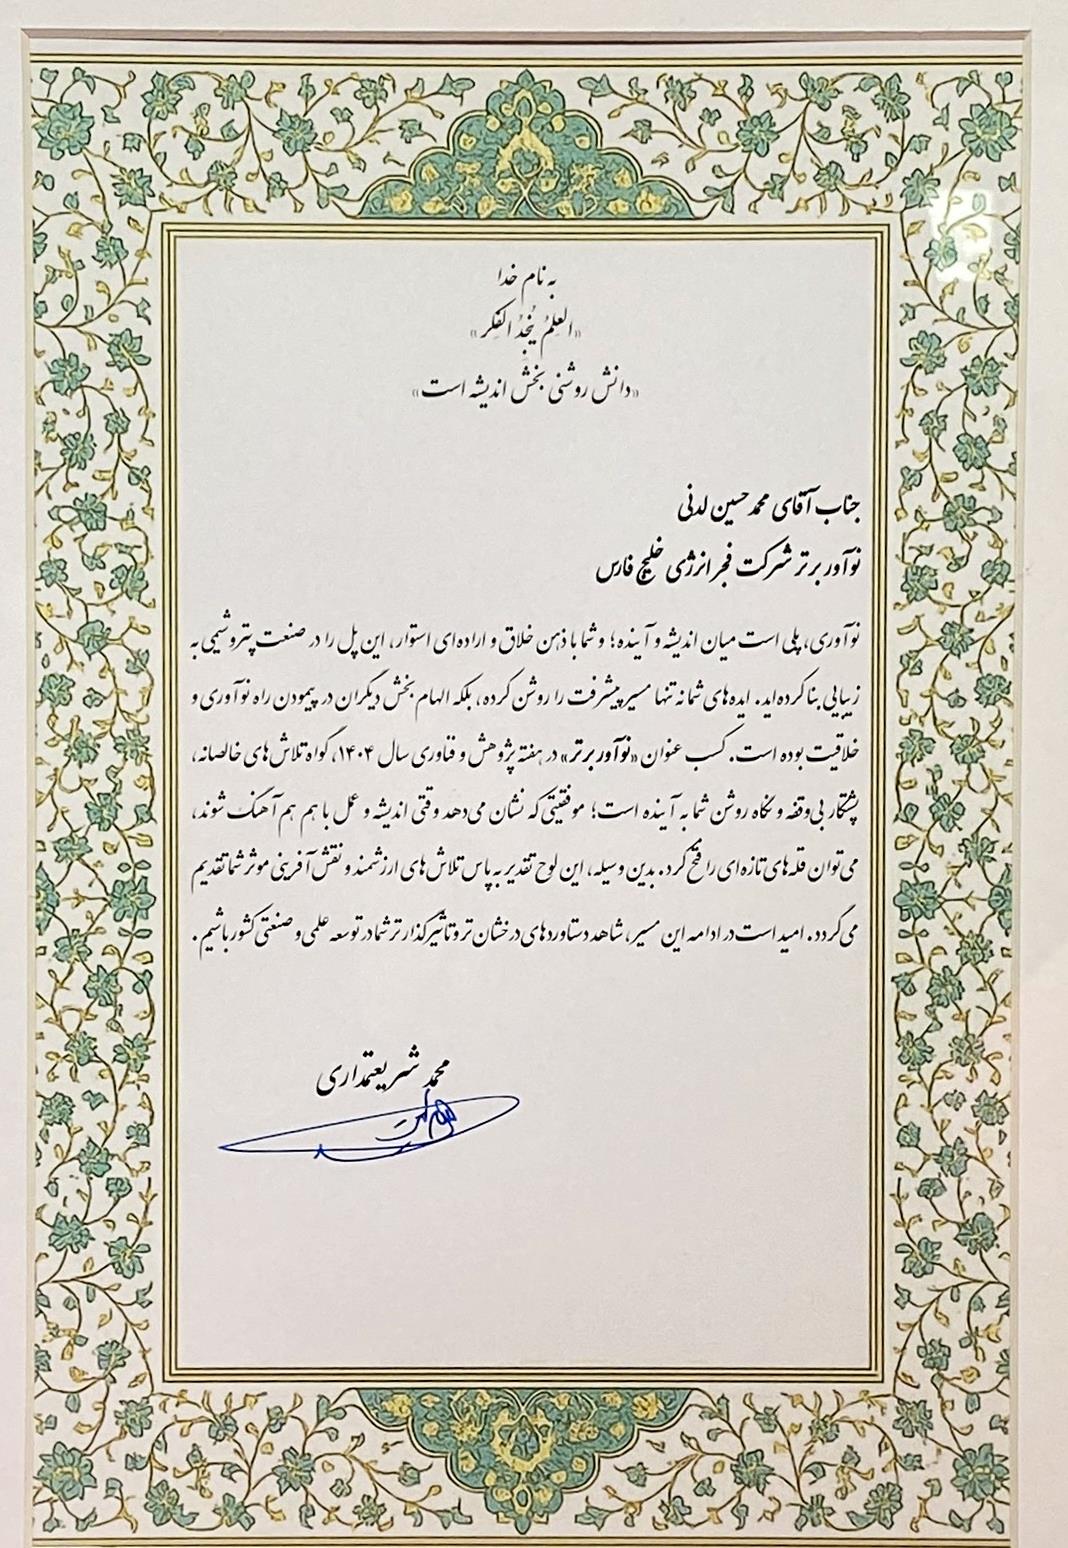 به نام خدا
«العِلمُ یُنجِدُ الفِکر»
«دانش روشنی بخش اندیشه است»
جناب آقای محمدحسین لدنی
نوآور برتر شرکت فجر انرژی خلیج فارس
نوآوری، پلی است میان اندیشه و آینده؛ و شما با ذهن خلاق و اراده‌ای استوار، این پل را در صنعت پتروشیمی به
زیبایی بنا کرده‌اید. ایده‌های شما نه تنها مسیر پیشرفت را روشن کرده، بلکه الهام بخش دیگران در پیمودن راه نوآوری و
خلاقیت بوده است. کسب عنوان «نوآور برتر» در هفته پژوهش و فناوری سال ۱۴۰۴، گواه تلاش‌های خالصانه،
پشتکار بی‌وقفه و نگاه روشن شما به آینده است؛ موفقیتی که نشان می‌دهد وقتی اندیشه و عمل با هم هم آهنگ شوند،
می‌توان قله‌های تازه‌ای را فتح کرد. بدین وسیله، این لوح تقدیر به پاس تلاش‌های ارزشمند و نقش آفرینی موثر شما تقدیم
می‌گردد. امید است در ادامه این مسیر، شاهد دستاوردهای درخشان تر و تاثیرگذارتر شما در توسعه علمی و صنعتی کشور باشیم.
محمد شریعتمداری